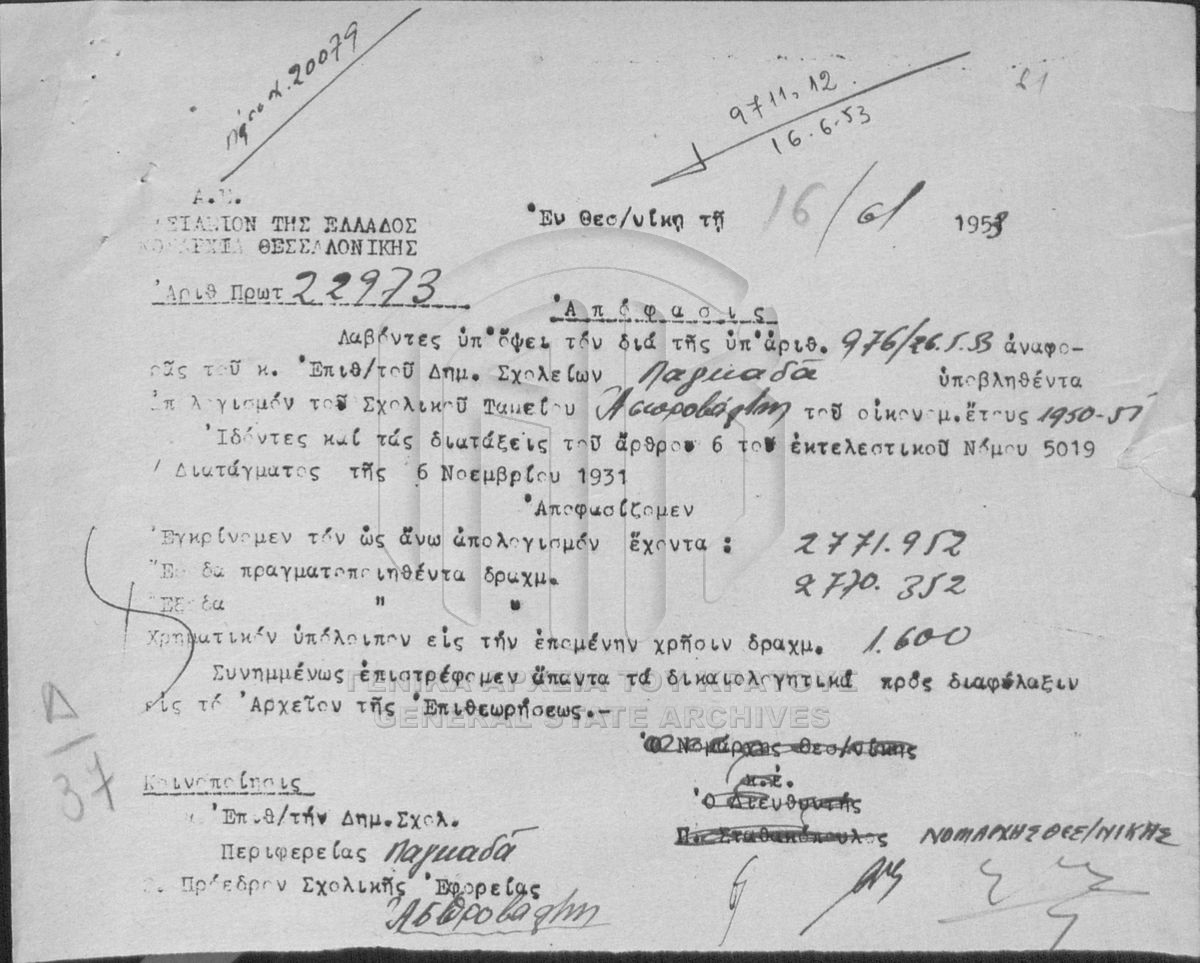 Πρωτ. 20079
9711.12
16.6.53
21
Α.Π.
ΒΑΣΙΛΕΙΟΝ ΤΗΣ ΕΛΛΑΔΟΣ
ΝΟΜΑΡΧΙΑ ΘΕΣΣΑΛΟΝΙΚΗΣ
Ἐν Θεσ/νίκῃ τῇ 16/6/ 1953
Ἀριθ Πρωτ 22973
Ἀπόφασις
Λαβόντες ὑπ' ὄψει τόν διά τῆς ὑπ' ἀριθ. 976/26.5.53 ἀναφο-
ρᾶς τοῦ κ. Ἐπιθ/τοῦ Δημ. Σχολείων Λαγκαδᾶ ὑποβληθέντα
ἀπολογισμόν τοῦ Σχολικοῦ Ταμείου Ἀσπροβάλτης τοῦ οἰκονομ. ἔτους 1950-51
Ἰδόντες καί τάς διατάξεις τοῦ ἄρθρου 6 τοῦ ἐκτελεστικοῦ Νόμου 5019
Διατάγματος τῆς 6 Νοεμβρίου 1931
Ἀποφασίζομεν
Ἐγκρίνομεν τόν ὡς ἄνω ἀπολογισμόν ἔχοντα : 2771.952
Ἔσοδα πραγματοποιηθέντα δραχμ. 2770.352
Ἔξοδα " "
Χρηματικόν ὑπόλοιπον εἰς τήν ἑπομένην χρῆσιν δραχμ. 1.600
Συνημμένως ἐπιστρέφομεν ἅπαντα τά δικαιολογητικά πρός διαφύλαξιν
εἰς τό Ἀρχεῖον τῆς Ἐπιθεωρήσεως.-
ΓΕΝΙΚΑ ΑΡΧΕΙΑ ΤΟΥ ΚΡΑΤΟΥΣ
GENERAL STATE ARCHIVES
Δ
37
Ὁ Νομάρχης Θεσ/νίκης
κ.ἐ.
Ὁ Διευθυντής
Π. Σταθακόπουλος ΝΟΜΑΡΧΗΣ ΘΕΣ/ΝΙΚΗΣ
Κοινοποίησις
κ. Ἐπιθ/τήν Δημ. Σχολ.
Περιφερείας Λαγκαδᾶ
Πρόεδρον Σχολικῆς Ἐφορείας
Ἀσπροβάλτης